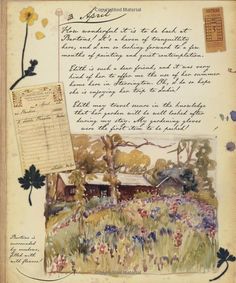 3 April
How wonderful it is to be back at
It's a haven of tranquillity
here, and I am so looking forward to a few
months of painting and quiet contemplation.
Edith is such a dear friend, and it was very
kind of her to offer me the use of her summer
home here in
she is enjoying her trip to India!
Edith may travel secure in the knowledge
that her garden will be well looked after
during my stay. My gardening gloves
were the first item to be packed!
is
surrounded
by
filled with
wild flowers!